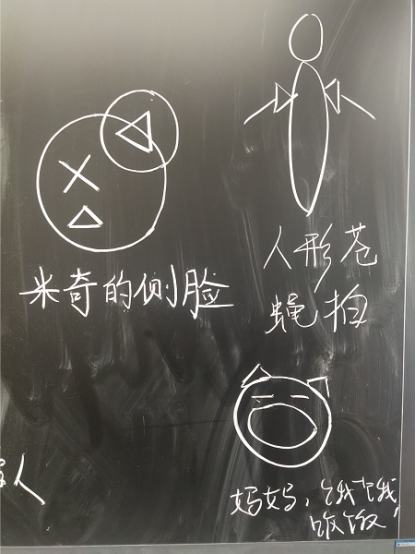 米奇的侧脸
人形苍
蝇拍
人
妈妈，饿饿
饭饭！